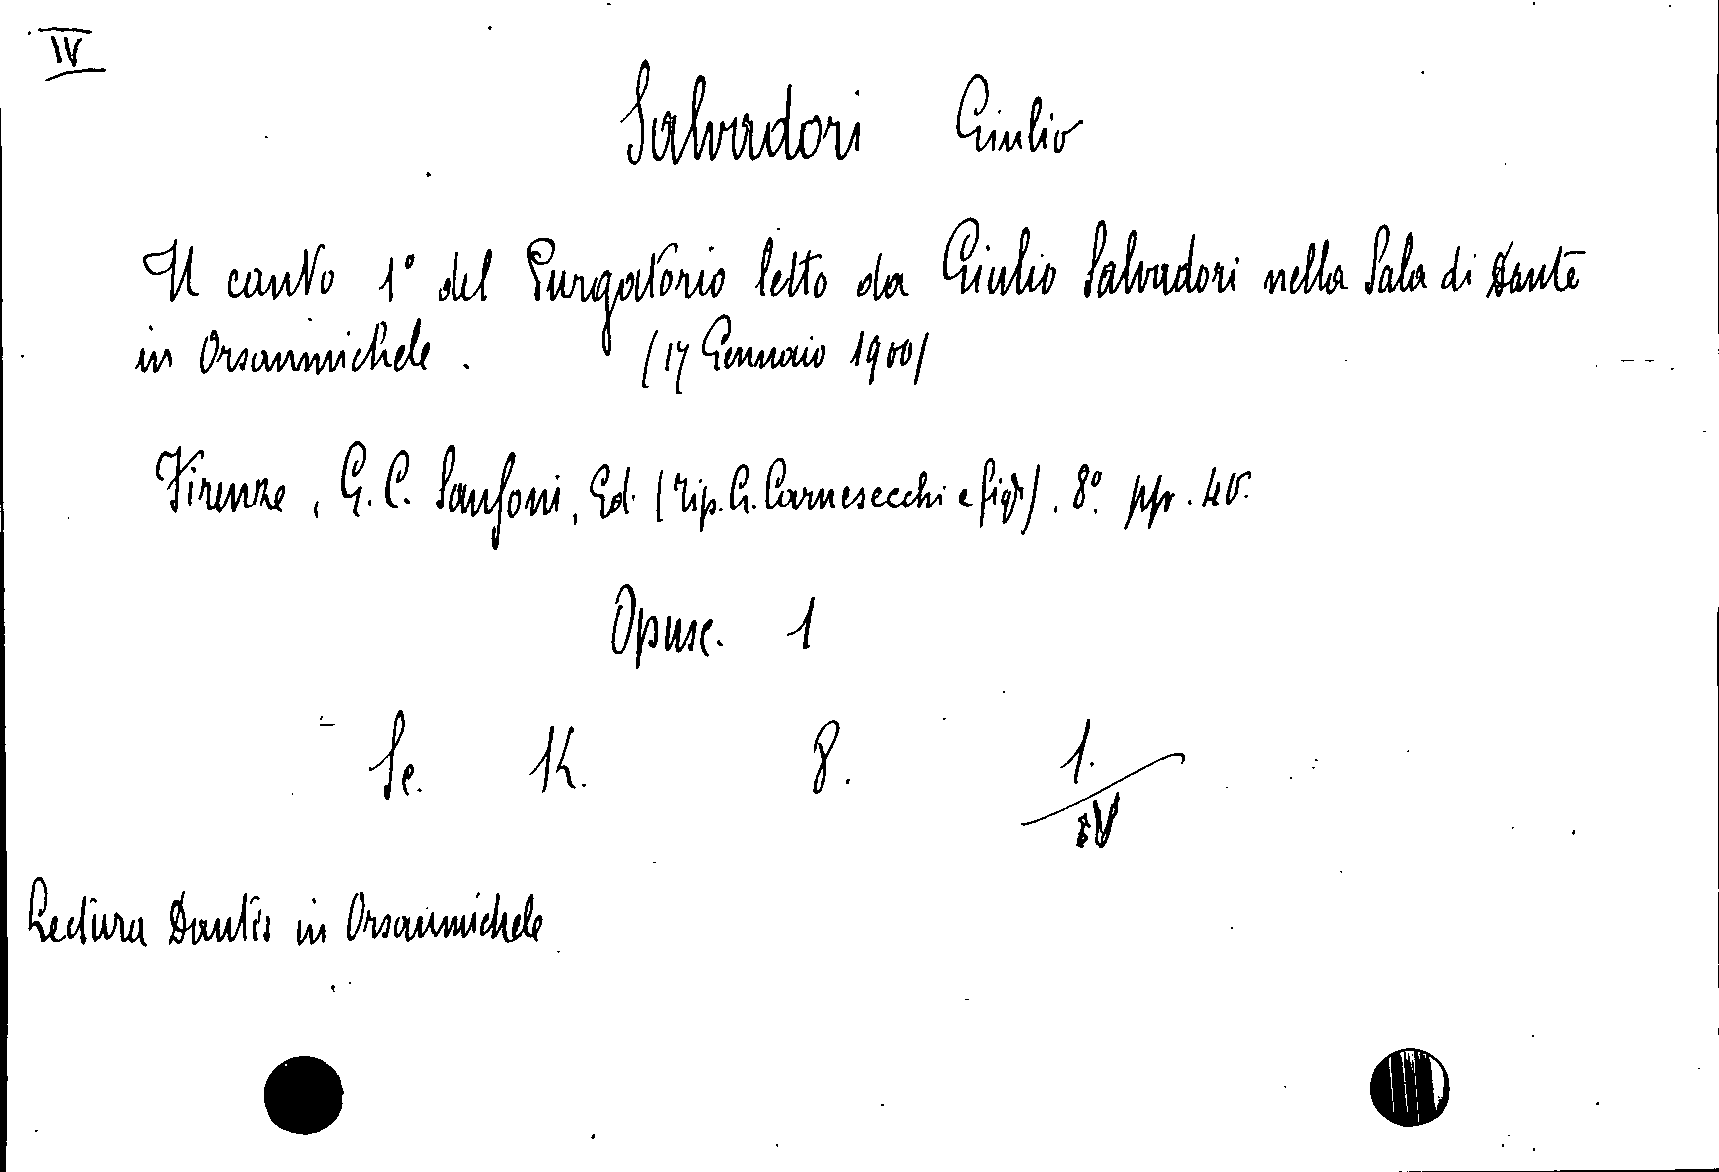 IV
Salvadori Giulio
Il canto 1° del Purgatorio letto da Giulio Salvadori nella Sala di Dante
in Orsanmichele. (17 Gennaio 1900)
Firenze, G. C. Sansoni, Ed. (Tip. G. Carnesecchi e figli). 8°. pp. 40.
Opusc. 1
Se. K. 8. 1.
IV
Lectura Dantis in Orsanmichele